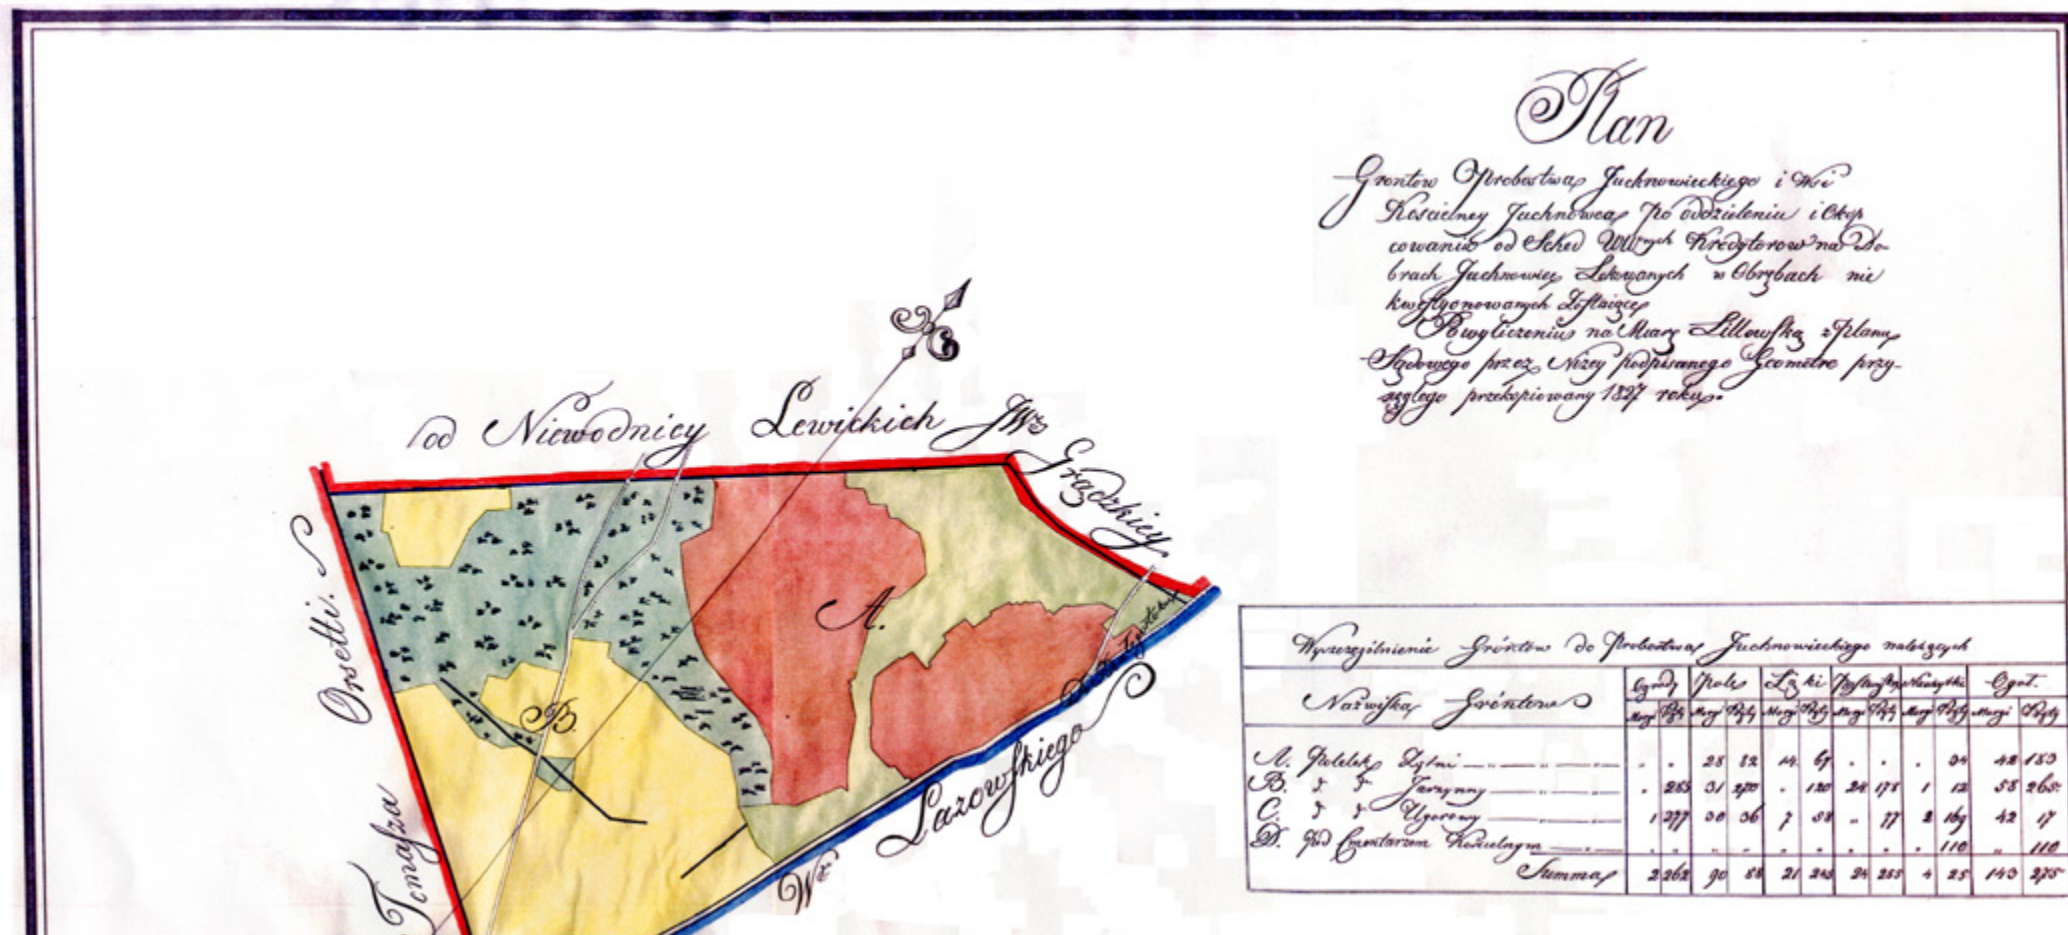 Plan
Grontow Probostwa Juchnowieckiego i Wsi
Koscielney Juchnowca po oddzieleniu i Okop
cowaniu od Sched Kredytorow na Do-
brach Juchnowiec Lokowanych w Obrębach nie
kwestyonowanych
na Miarę Littewską z planu
Sądowego przez Niżey podpisanego Geometrę przy-
sięgłego przekopiowany 1827 roku.
od Niewodnicy Lewickich JWs
Grądzkiey
Orsetti.
A.
B.
Łazowskiego
Tomasza
Wyszczegulnienie Gróntow do Probostwa Juchnowieckiego należących
Nazwiska Gróntow Ogrody Pole Łąki Ogół.
Morgi Pręty Morgi Pręty Morgi Pręty Morgi Pręty Morgi Pręty Morgi Pręty
A. Poletek Żytni 28 82 14 67 . . . 34 42 183
B. d d Jarzynny . 285 31 270 . 120 24 178 1 12 58 265
C. d d Ugorowy 1 277 30 36 7 58 .. 77 2 169 42 17
D. pod Cmentarzem Koscielnym 110 .. 110
Summa 2 262 90 88 21 245 24 255 4 25 143 275